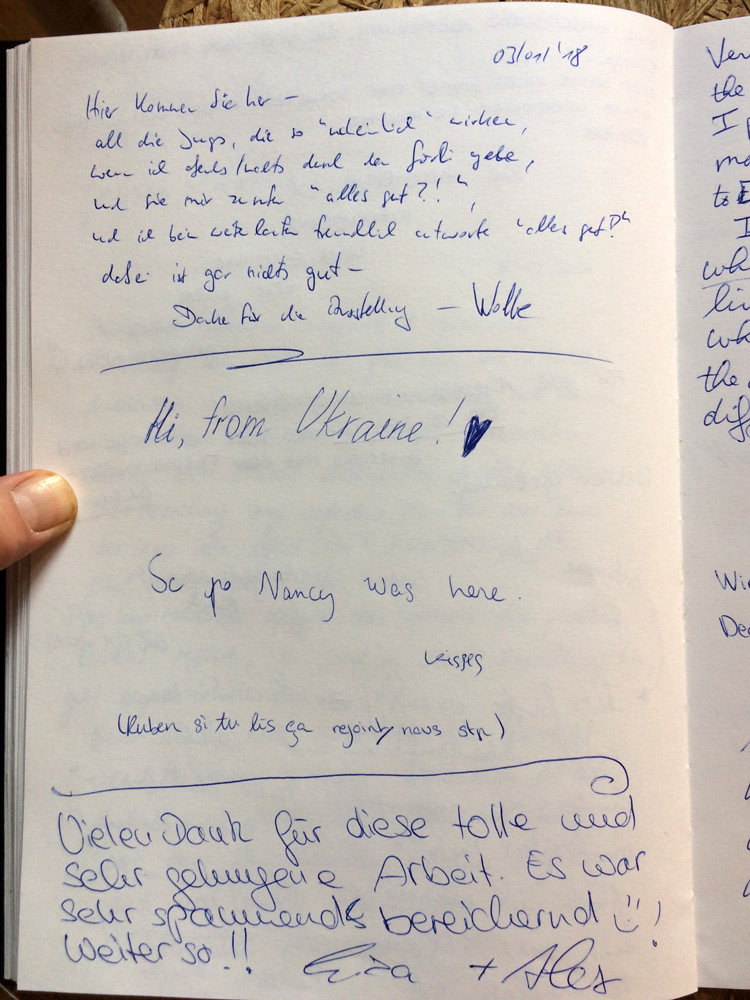 03/01/'18
Hier kommen Sie her –
all die Jungs, die so "unheimlich" wirken,
wenn ich abends/nachts durch den Görli gehe,
und sie mir zurufen "alles gut?!",
und ich beim weiterlaufen freundlich antworte "alles gut!"
dabei ist gar nichts gut –
Danke für die Ausstellung – Wolke
Hi, from Ukraine! ♥
Nancy was here.
Kisses
(Ruben si tu lis ça rejoint nous stp)
Vielen Dank für diese tolle und
sehr gelungene Arbeit. Es war
sehr spannend & bereichernd !
Weiter so!!
+ Alex
Ver
the
I
ma
to
I
wh
liv
wh
the
dif
Wi
De